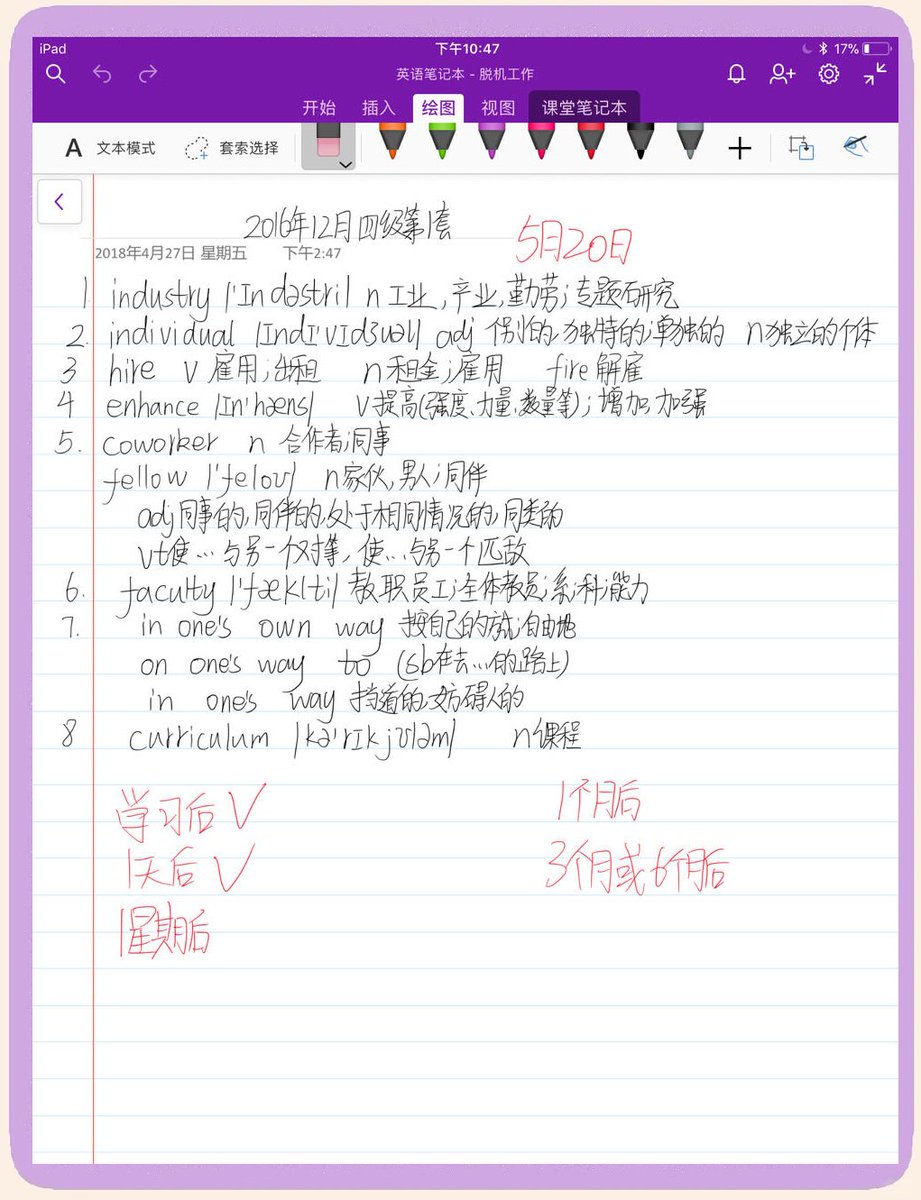 iPad 下午10:47 17%
英语笔记本 - 脱机工作
开始 插入 绘图 视图 课堂笔记本
A 文本模式 套索选择
2016年12月四级第1套 5月20日
2018年4月27日 星期五 下午2:47
1 industry |'Indəstri| n 工业,产业,勤劳;专题研究
2. individual |IndI'vIdʒuəl| adj 个别的;独特的;单独的 n独立的个体
3 hire v 雇用;出租 n租金;雇用 fire 解雇
4 enhance |In'hæns| v提高(强度、力量、数量等);增加,加强
5. coworker n 合作者;同事
fellow |'feloʊ| n家伙,男人;同伴
adj同事的,同伴的,处于相同情况的,同类的
vt使…与另一个对等,使…与另一个匹敌
6. faculty |'fæklti| 教职员工;全体教员;系;科;能力
7. in one's own way 按自己的方式;自由地
on one's way to (sb在去…的路上)
in one's way 挡道的,妨碍人的
8 curriculum |kə'rIkjʊləm| n课程
学习后 √ 1个月后
1天后 √ 3个月或6个月后
1星期后